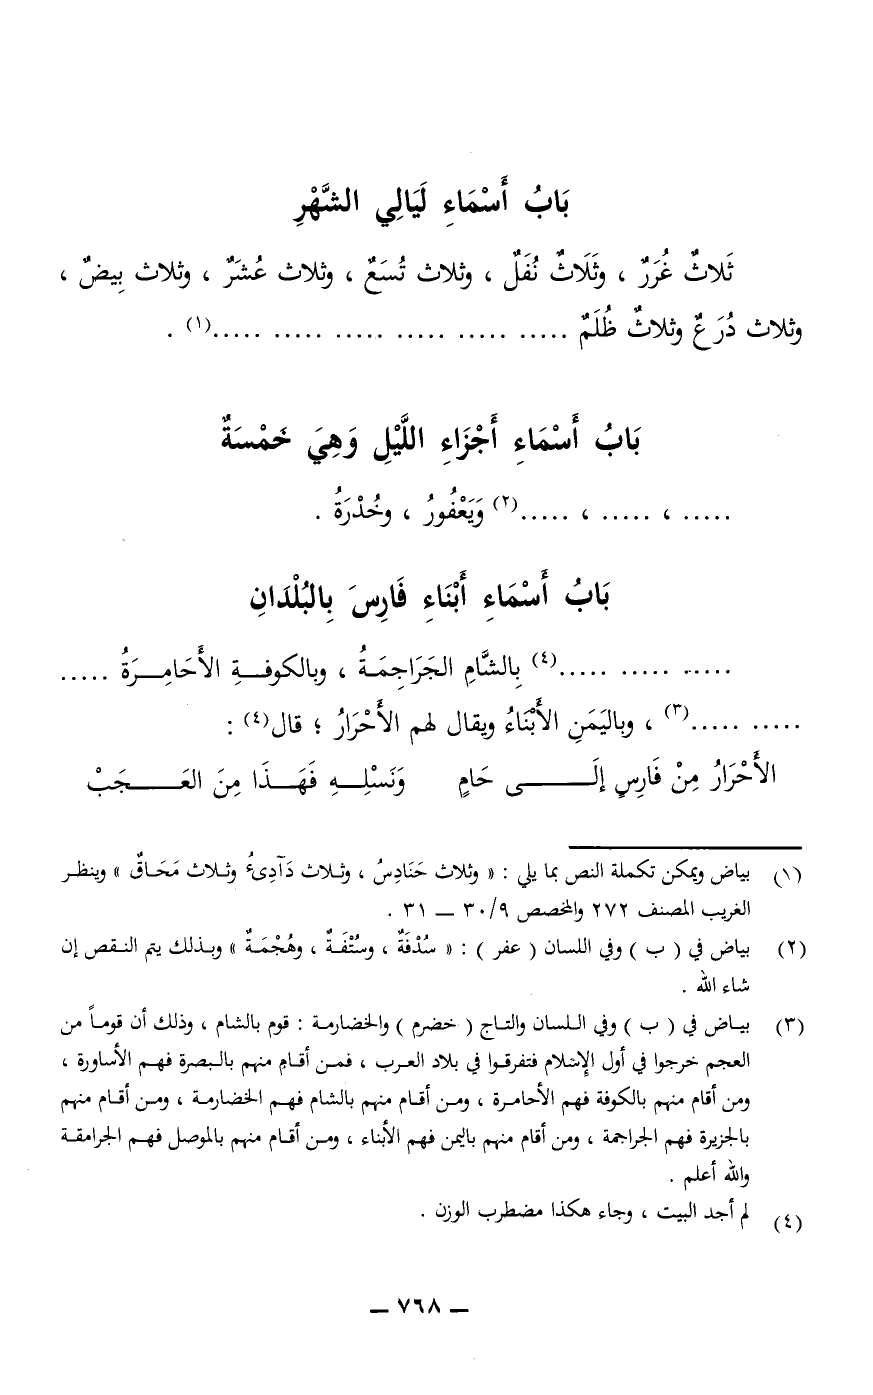 بَابُ أَسْمَاءِ لَيَالِي الشَّهْرِ
ثَلاثٌ غُرَرٌ ، وثَلَاثٌ نُفَلٌ ، وثلاث تُسَعٌ ، وثلاث عُشَرٌ ، وثلاث بِيضٌ ،
وثلاث دُرَعٌ وثلاثٌ ظُلَمٌ ..... ..... ..... ..... ..... .....(١) .
بَابُ أَسْمَاءِ أَجْزَاءِ اللَّيْلِ وَهِيَ خَمْسَةٌ
..... ، ..... ، .....(٢) وَيَعْفُورُ ، وخُدْرَةُ .
بَابُ أَسْمَاءِ أَبْنَاءِ فَارِسَ بِالبُلْدَانِ
..... ..... .....(٤) بِالشَّامِ الجَرَاجِمَةُ ، وبالكوفةِ الأَحَامِرَةُ .....
..... .....(٣) ، وباليَمَنِ الأَبْنَاءُ ويقال لهم الأَحْرَارُ ؛ قال(٤) :
الأَحْرَارُ مِنْ فَارِسٍ إِلَى حَامٍ وَنَسْلِهِ فَهَذَا مِنَ العَجَبْ
(١) بياض ويمكن تكملة النص بما يلي : « وثلاث حَنَادِسُ ، وثلاث دَآدِىءُ وثلاث مَحَاقٌ » وينظر
الغريب المصنف ٢٧٢ والمخصص ٣٠/٩ ــ ٣١ .
(٢) بياض في ( ب ) وفي اللسان ( عفر ) : « سُدْفَةٌ ، وسُتْفَةٌ ، وهُجْمَةٌ » وبذلك يتم النقص إن
شاء الله .
(٣) بياض في ( ب ) وفي اللسان والتاج ( خضرم ) والخضارمة : قوم بالشام ، وذلك أن قوماً من
العجم خرجوا في أول الإسلام فتفرقوا في بلاد العرب ، فمن أقام منهم بالبصرة فهم الأساورة ،
ومن أقام منهم بالكوفة فهم الأحامرة ، ومن أقام منهم بالشام فهم الخضارمة ، ومن أقام منهم
بالجزيرة فهم الجراجمة ، ومن أقام منهم باليمن فهم الأبناء ، ومن أقام منهم بالموصل فهم الجرامقة
والله أعلم .
(٤) لم أجد البيت ، وجاء هكذا مضطرب الوزن .
ــ ٧٦٨ ــ